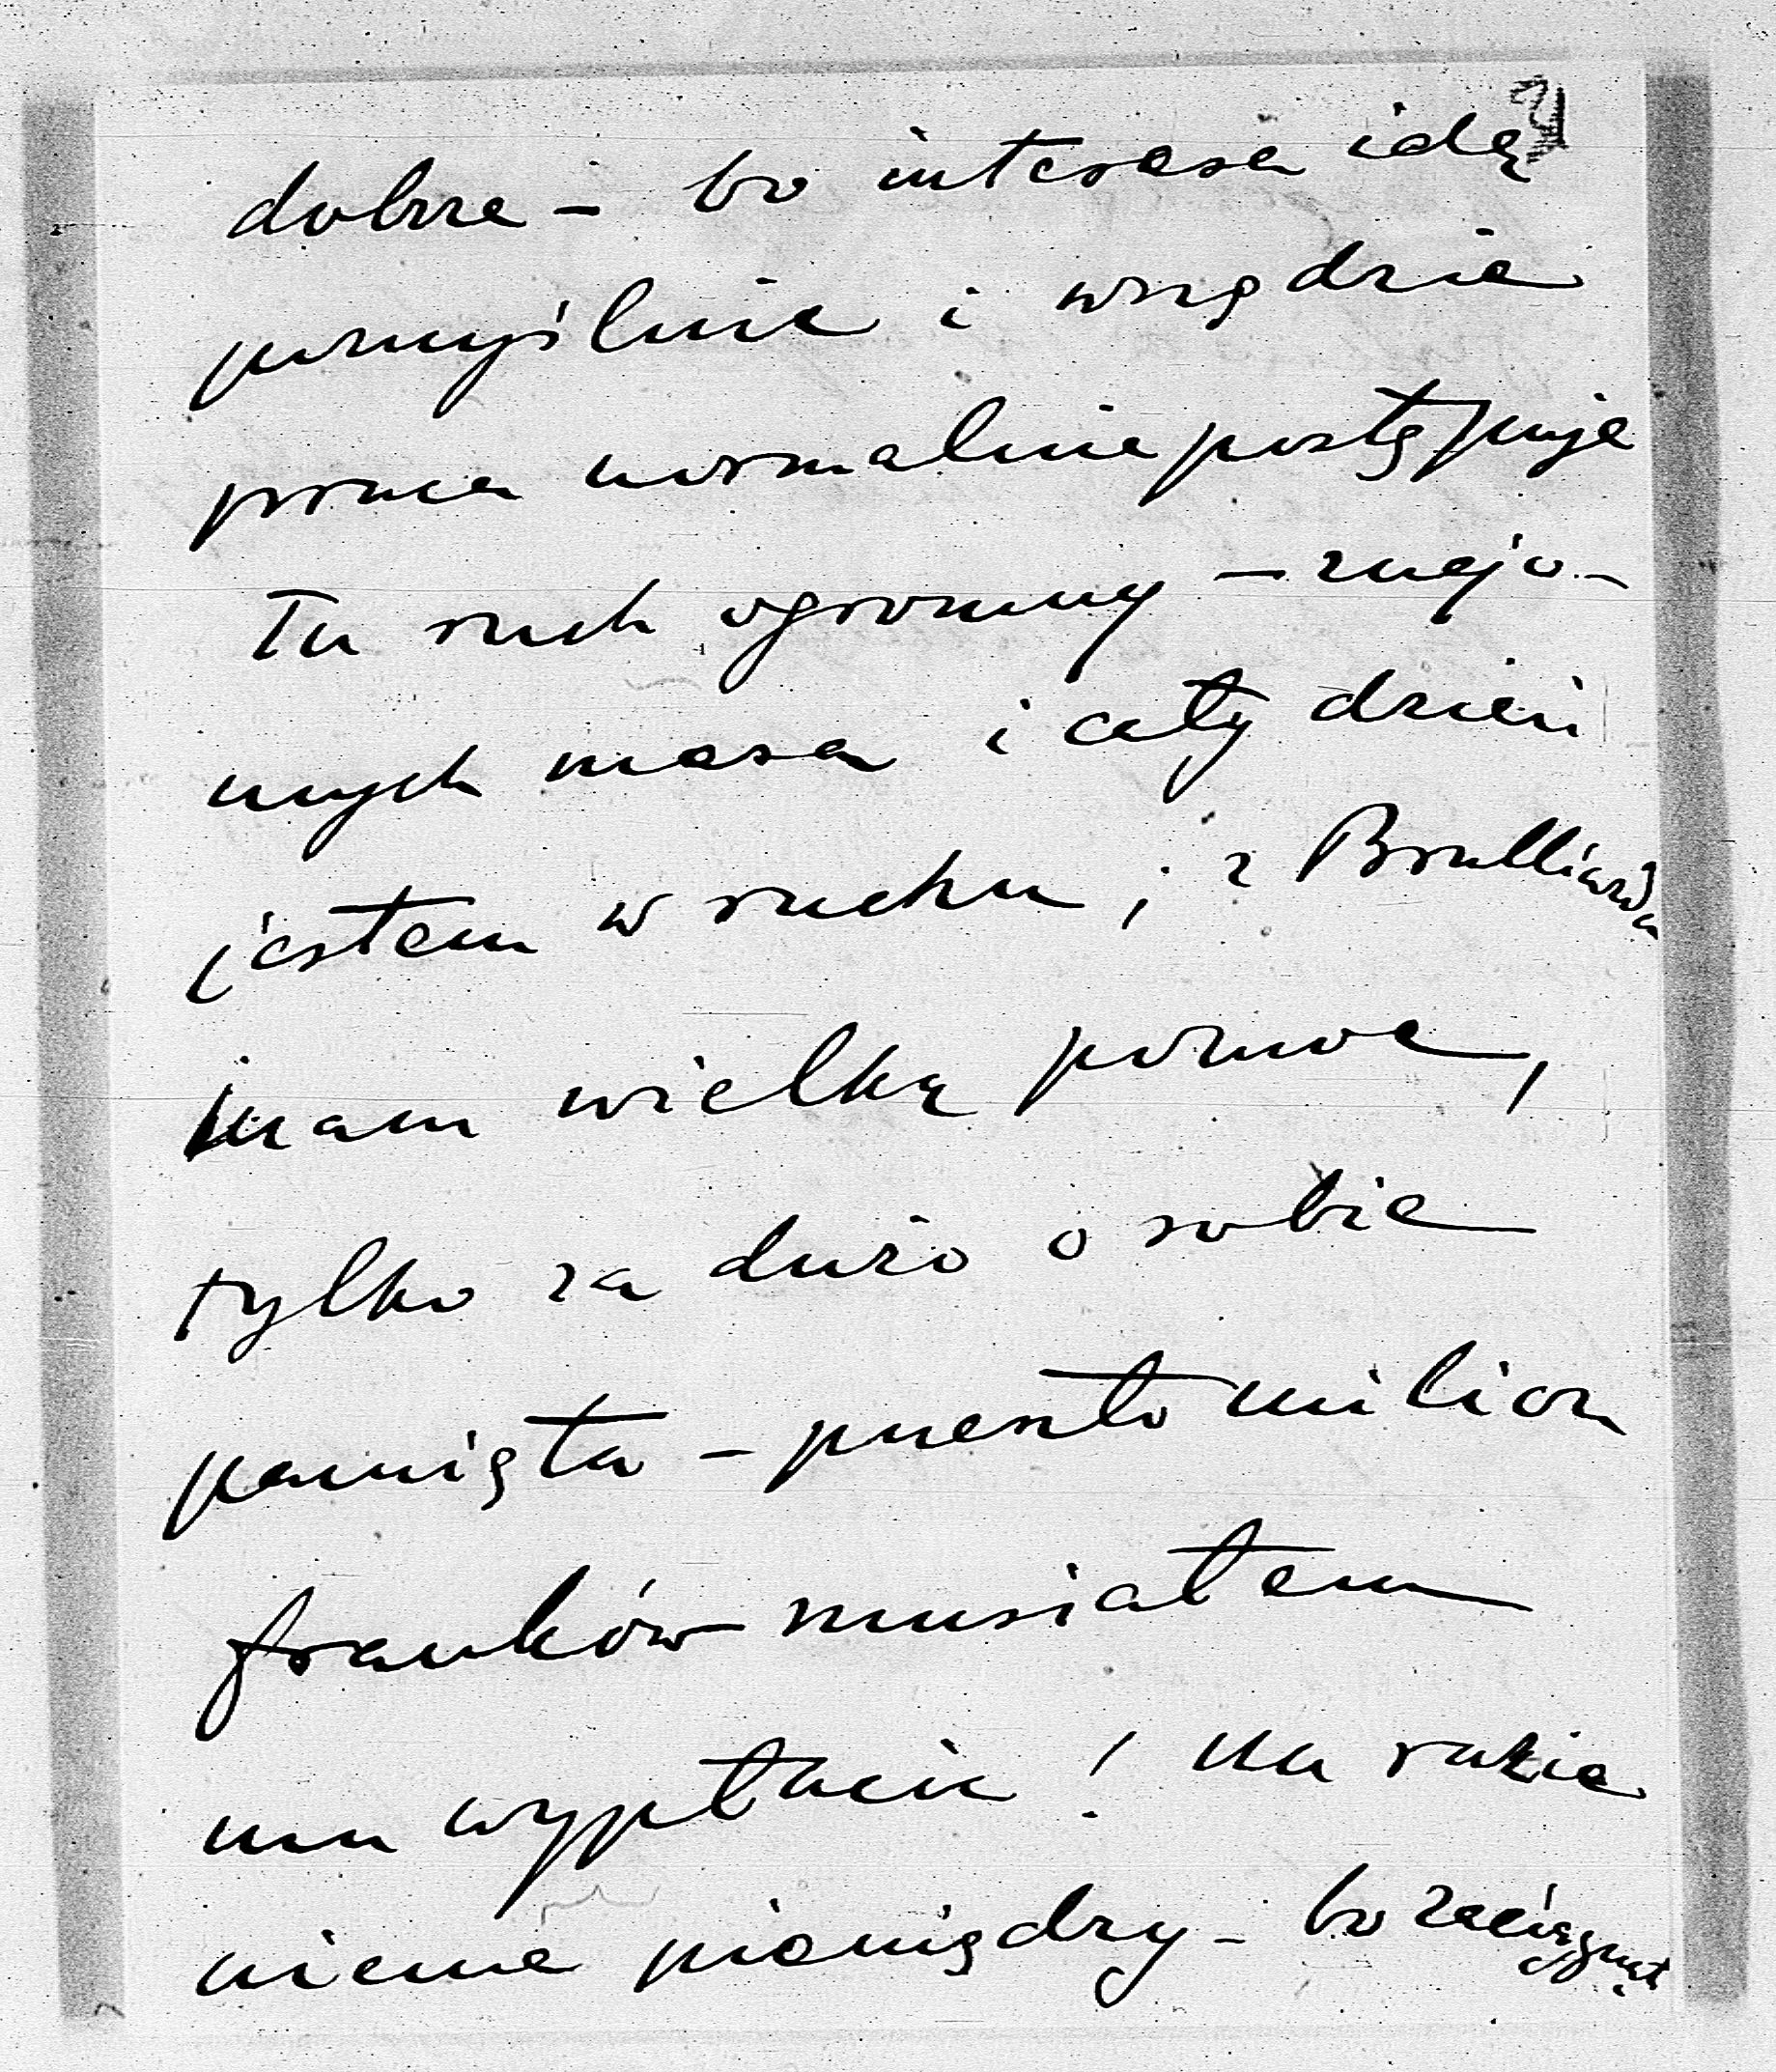 dobrze – bo interesa idą
pomyślnie i wszędzie
praca normalnie postępuje
Tu ruch ogromny – znajo-
mych masa i cały dzień
jestem w ruchu ; z Brulliarda
mam wielką pomoc,
tylko za dużo o sobie
pamięta – przeszło milion
franków musiałem
mu wypłacić ! Na razie
niema pieniędzy – bo zaciągnął